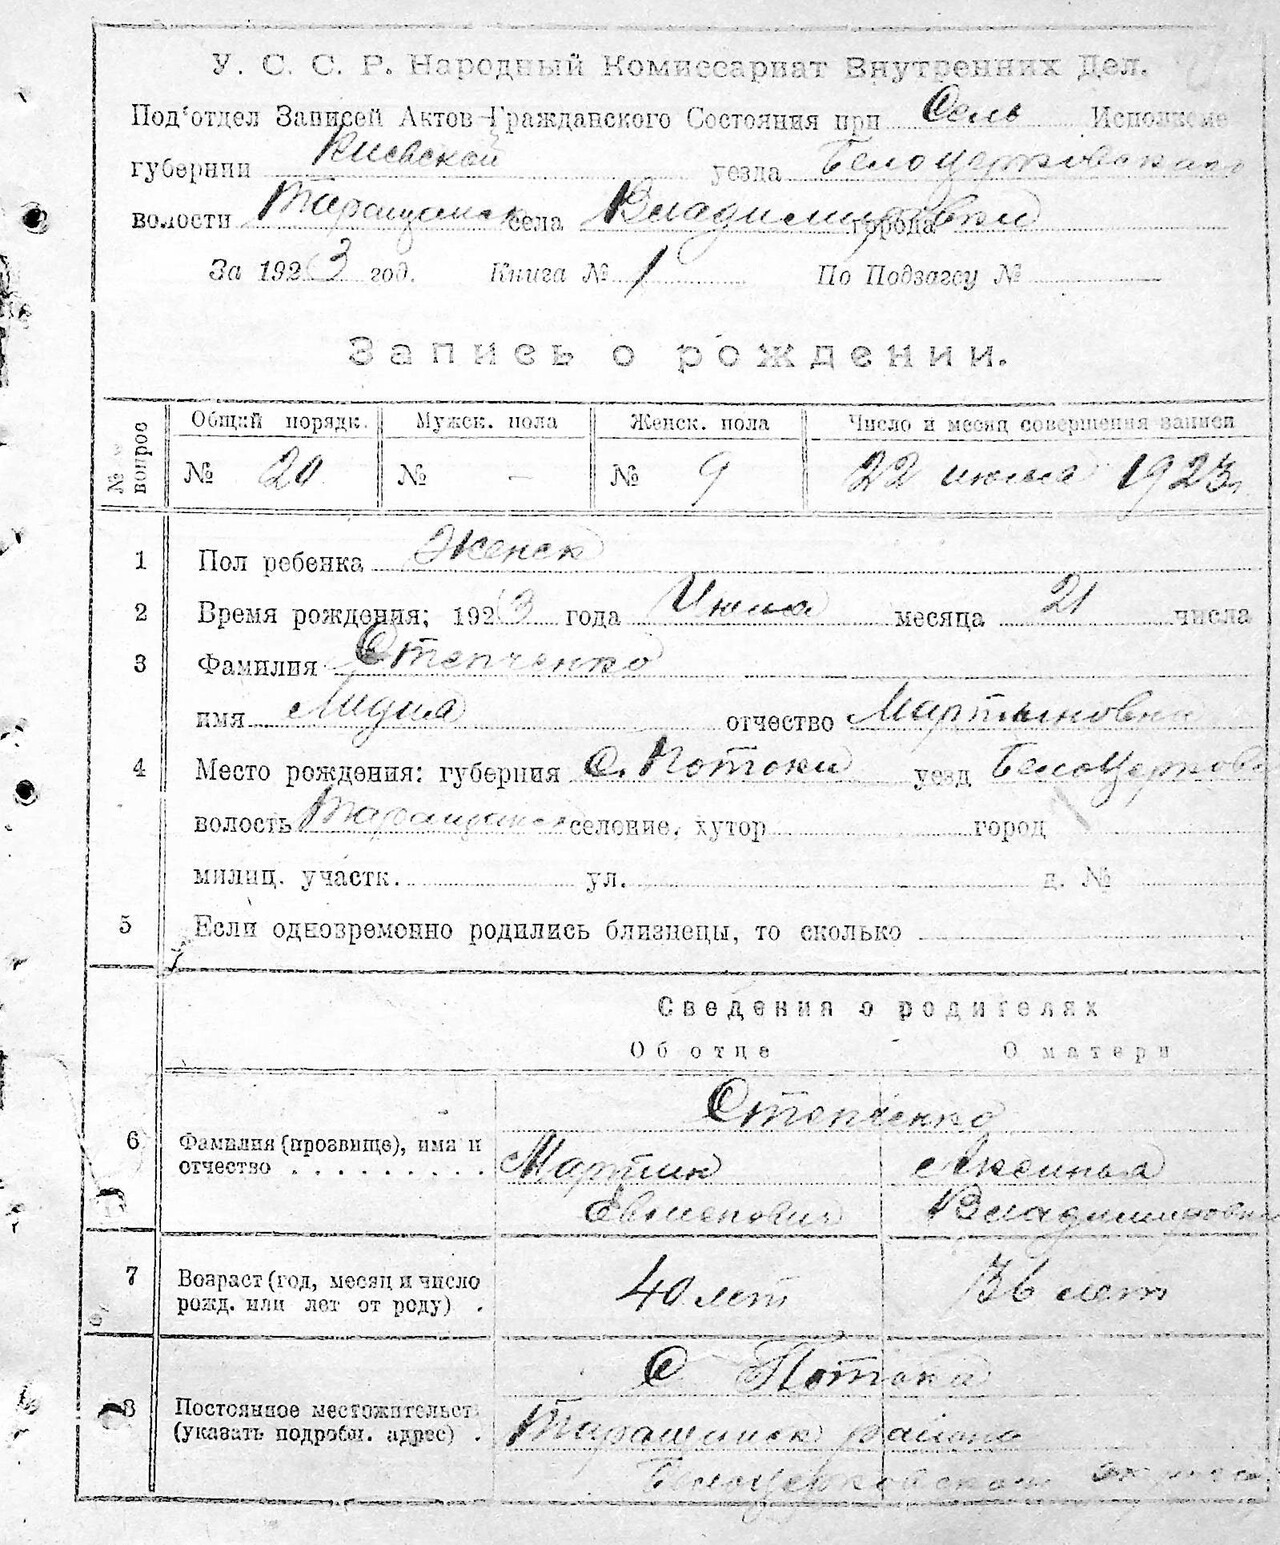 У. С. С. Р. Народный Комиссариат Внутренних Дел.
Под'отдел Записей Актов Гражданского Состояния при Сель Исполкоме
губернии Киевской уезда Белоцерковского
волости Таращанск села Владимировки города
За 1923 год. Книга № 1 По Подзагсу №
Запись о рождении.
№ вопрос
Общий порядк. Мужск. пола Женск. пола Число и месяц совершения записи
№ 20 № - № 9 22 июля 1923г.
1 Пол ребенка Женск
2 Время рождения; 1923 года Июля месяца 21 числа
3 Фамилия Степченко
имя Лидия отчество Мартыновна
4 Место рождения: губерния С. Потоки уезд Белоцерков
волость Таращанск селение, хутор город
милиц. участк. ул. д. №
5 Если одновременно родились близнецы, то сколько
Сведения о родителях
Об отце О матери
Степченко
6 Фамилия (прозвище), имя и отчество Мартин Аксинья
Евменович Владимировна
7 Возраст (год, месяц и число рожд. или лет от роду) 40 лет 36 лет
С Потоки
8 Постоянное местожительст (указать подробн. адрес) Таращанск района
Белоцерковской